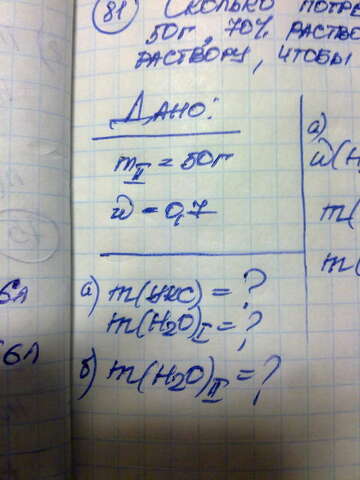 81 Сколько потре
50г, 70% раство
раствору, чтобы
Дано:
mII = 50г
ω = 0,7
а) m(укс) = ?
m(H2O)I = ?
б) m(H2O)II = ?
а)
ω(H
m(
m(
6л
6л